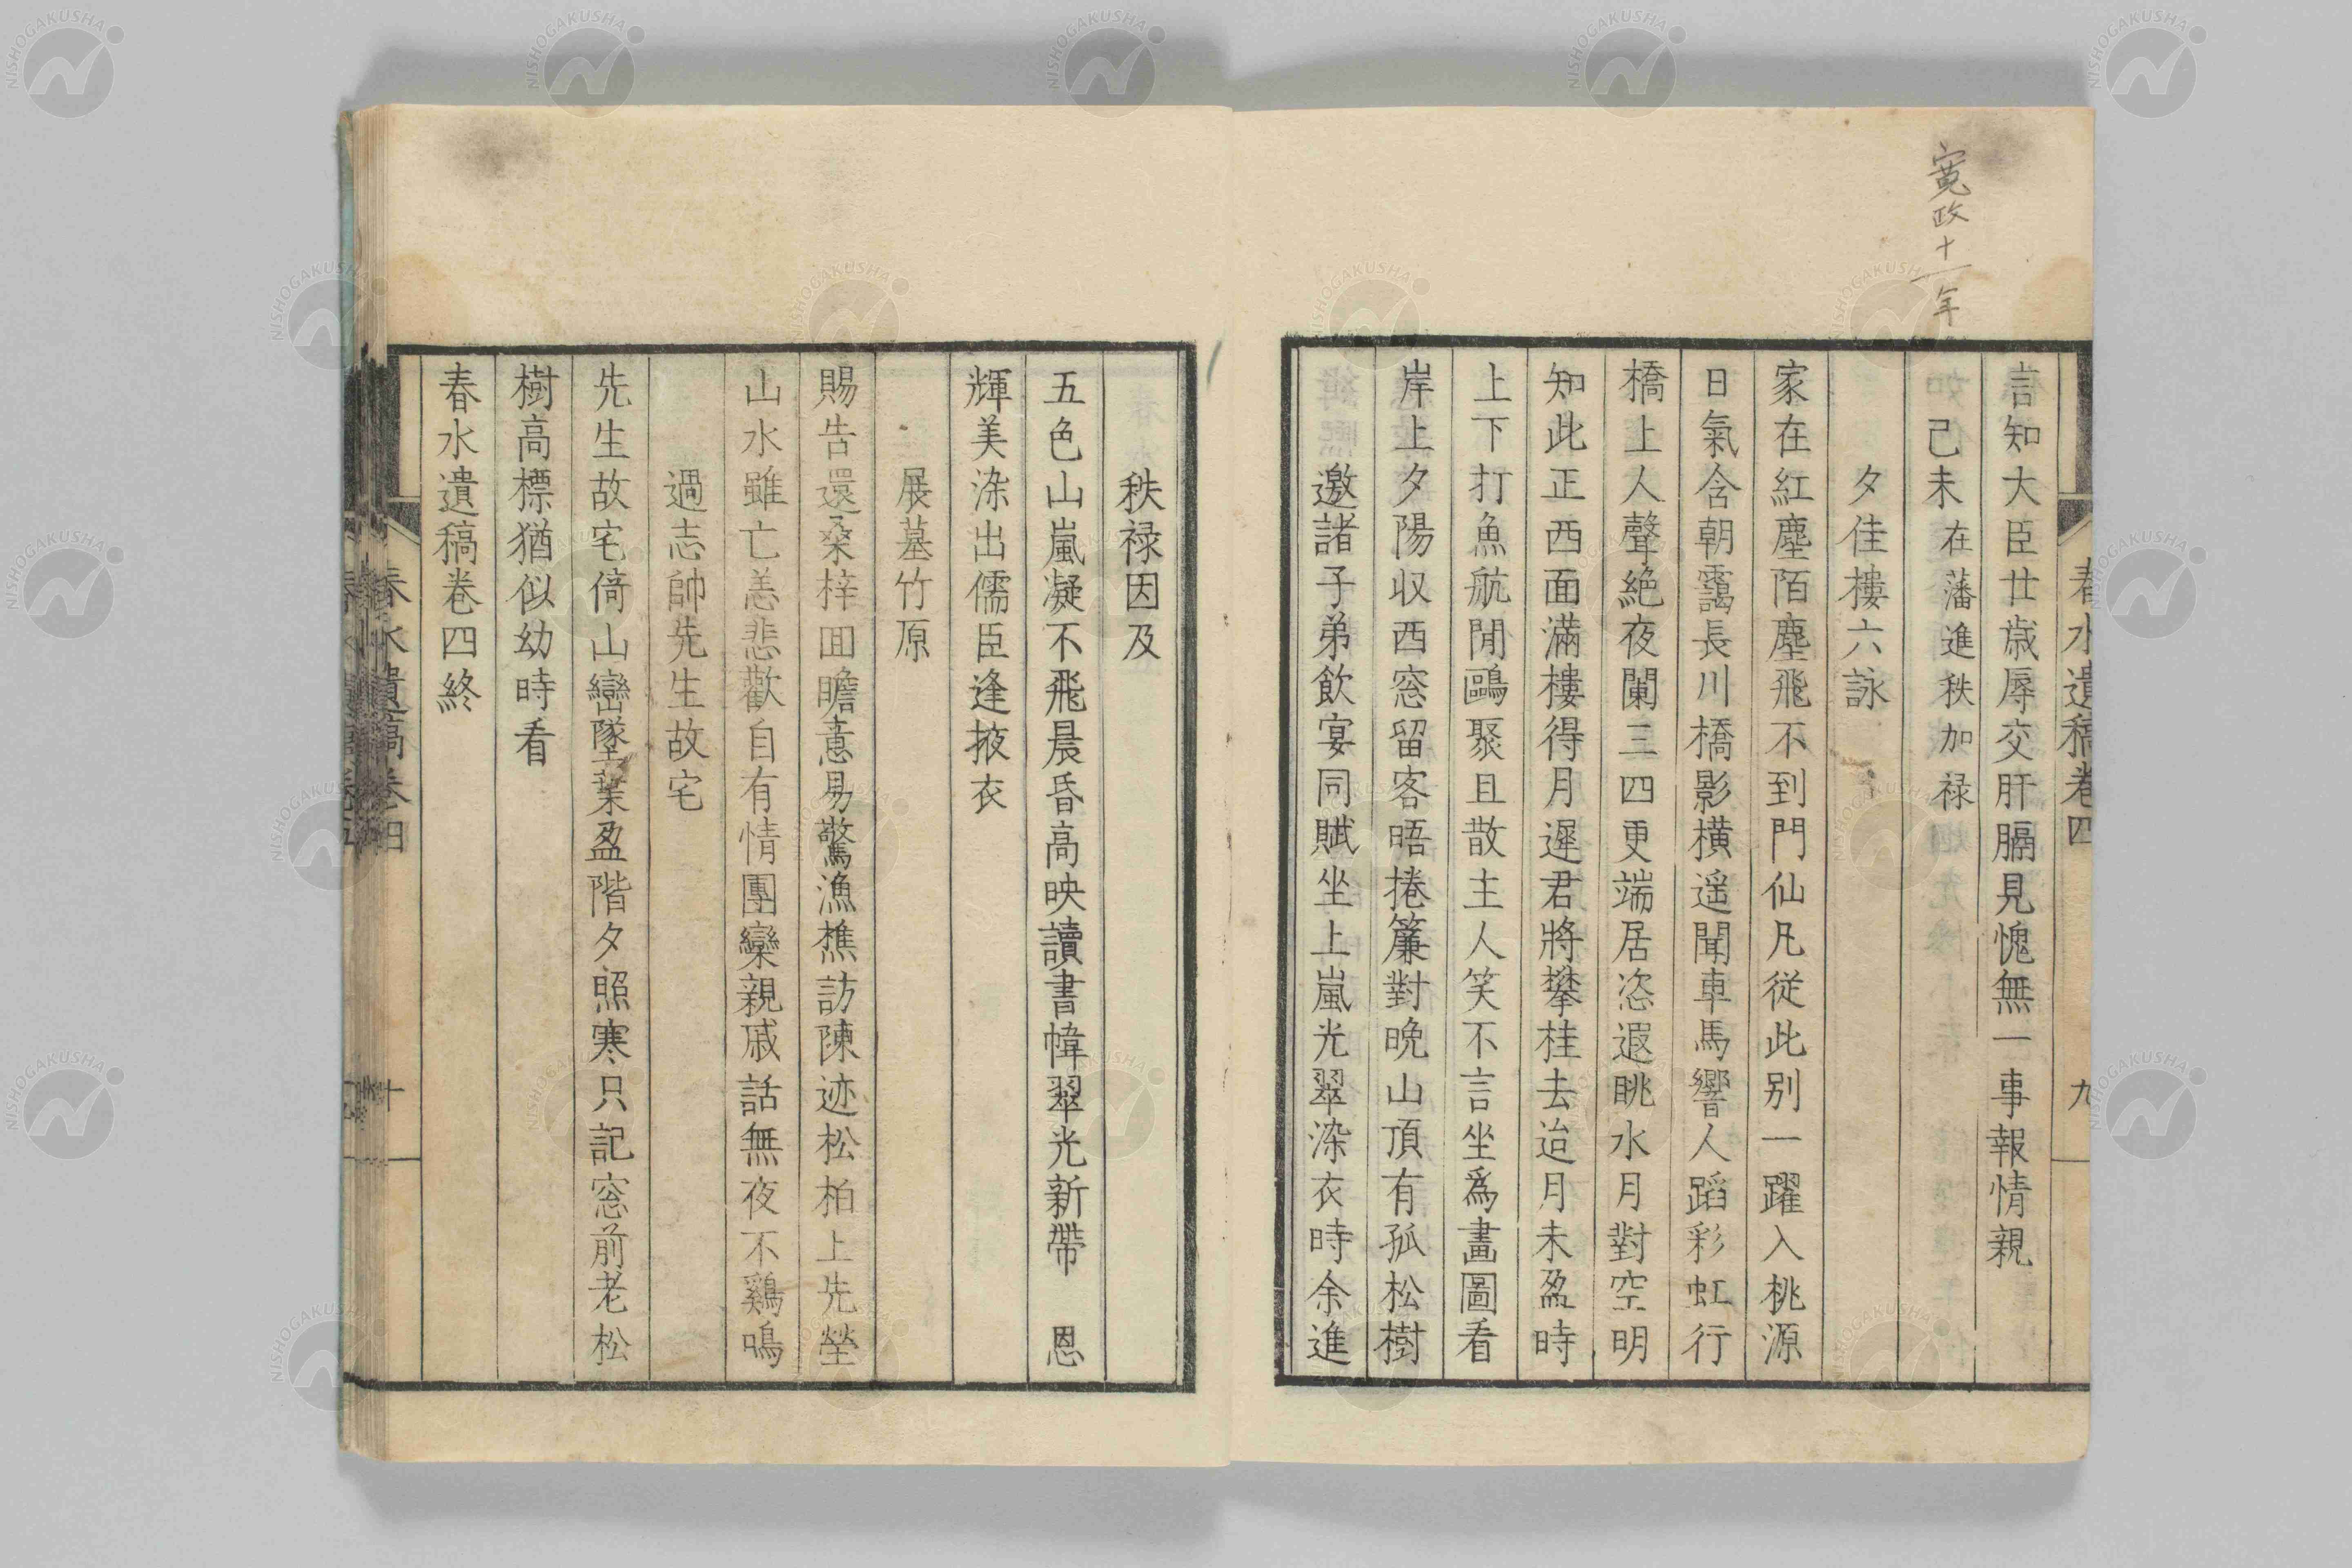 寛政十一年
春水遺稿卷四
九
言知大臣廿歳辱交肝膈見愧無一事報情親
己未在藩進秩加禄
夕佳樓六詠
家在紅塵陌塵飛不到門仙凡従此別一躍入桃源
日氣含朝靄長川橋影横遥聞車馬響人蹈彩虹行
橋上人聲絶夜闌三四更端居恣遐眺水月對空明
知此正西面滿樓得月遲君將攀桂去迨月未盈時
上下打魚航閒鷗聚且散主人笑不言坐爲畫圖看
岸上夕陽収西窓留客晤捲簾對晩山頂有孤松樹
邀諸子弟飲宴同賦坐上嵐光翠染衣時余進
秩禄因及
五色山嵐凝不飛晨昏高映讀書幃翠光新帶 恩
輝美染出儒臣逢掖衣
展墓竹原
賜告還桑梓囬瞻意易驚漁樵訪陳迹松柏上先塋
山水雖亡恙悲歡自有情團欒親戚話無夜不鷄鳴
過志帥先生故宅
先生故宅倚山巒墜葉盈階夕照寒只記窓前老松
樹高標猶似幼時看
春水遺稿卷四終
春水遺稿卷四
十
NISHOGAKUSHA